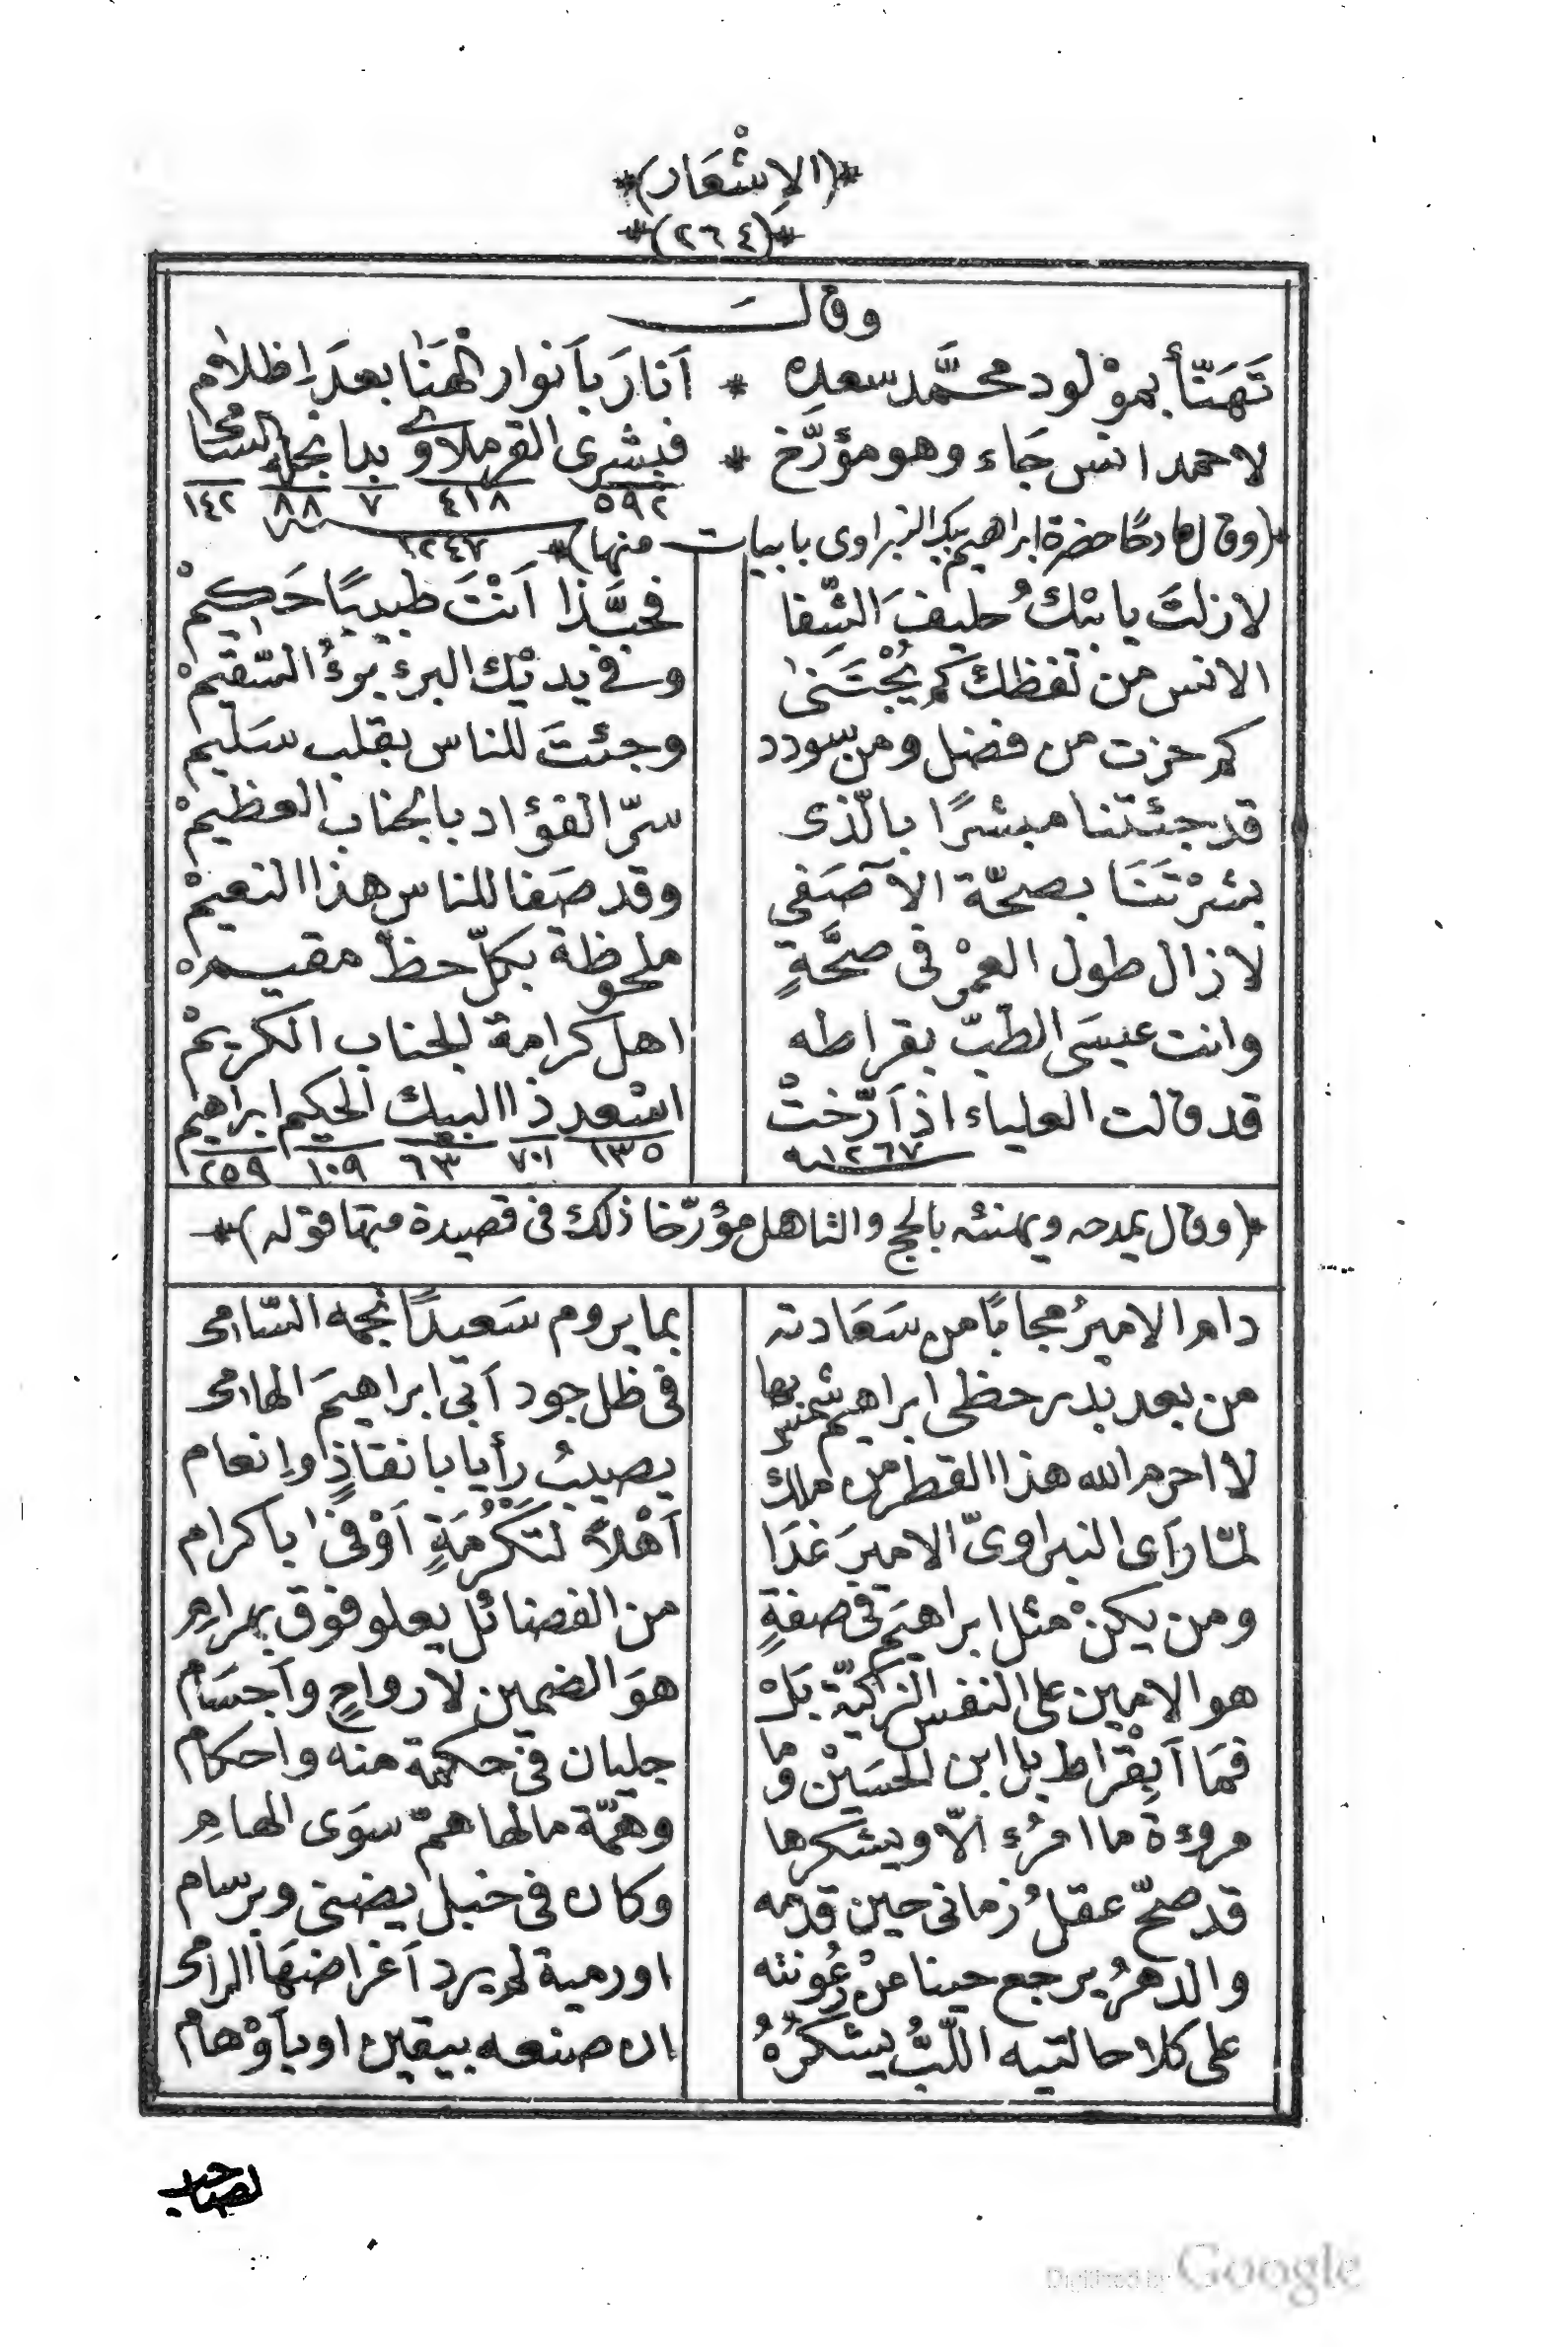 *(الاِشْعَار)*
*(٢٦٤)*
وقالَ
تَهَنّأ بموْلود محمَّد سعدِه * اَنارَ بَاَنوار الهَنَا بعدَ اِظلام
لاحمد انس جَاء وهو مؤرَّخ * فبشرى القرملاوى بدا نجله السامى
٥٩٢ ٤١٨ ٧ ٨٨ ١٤٢
*(وقال مادحًا حضرة ابراهيم بيك النبراوى بابيات منها)* ١٢٤٧
لازلتَ يا بْنكُ حليفَ الشِّفا فحبَّذا اَنْتَ طبيبًا حَكيمْ
الانس من لفظك كم يُجْتَنىٰ وفى يديْك البرء يبرءُ السّقيمْ
كم حزت من فضل ومن سودد وجئتَ للناس بقلب سَليم
قد جئتنا مبشرًا بالّذى سرّ الفؤاد بالجناب العظيمْ
بشرْتَنَا بصحّة الآصَفى وقد صَفا للناس هذا النعيمْ
لازال طول العمْر فى صحَّةٍ ملحوظة بكلّ حظّ مقيمْ
وانت عيسَى الطبّ بقراطه اهل كرامة لجناب الكريمْ
قد قالت العلياء اذ اَرّختْ اسْعد ذا البيك الحكيم ابراهيم
١٢٦٧ ١٣٥ ٧٠١ ٦٣ ١٠٩ ٢٥٩
*(وقال يمدحه ويهنئه بالحج والتاهل مؤرّخا ذلك فى قصيدة منها قوله)*
دام الاميرُ مجابًا من سَعَادته بما يروم سَعيدًا نجمه السّامى
من بعد بدر حظى ابراهيم شمس بها فى ظل جود اَبى ابراهيمَ الهامى
لا احرم الله هذا القطر من ملك يصيبُ رأيا بانقاذٍ واِنعام
لمّا رَاَى النبراوىّ الاميرَ غدَا اَهْلاً لتَكْرُمَةٍ اَوْفىٰ باكرام
ومن يكنْ مثل ابراهيمَ فى صفةٍ من الفضائل يعلو فوق بهرام
هو الامين على النفس الزكيّة بَلْ هوَ الضمين لارواحٍ واَجسَام
فمَا اَبِقْراط بل ابن الحسَيْن وما جليان فى حكمة منه واحكام
مروءة ما امرُء الّا ويشكرها وهمّة مالها همّ سوَى الهام
قد صحّ عقلُ زمانى حين قدمه وكان فى خبل يضنى وبرسام
والدهرُ يرجع حينا منْ رعُونته اورمية لم يرد اَغراضهَا الرامى
على كلا حالتيه اللّبُّ يشكرُهُ ان صنعه بيقين او باَوْهام
لصاحب
Digitized by Google